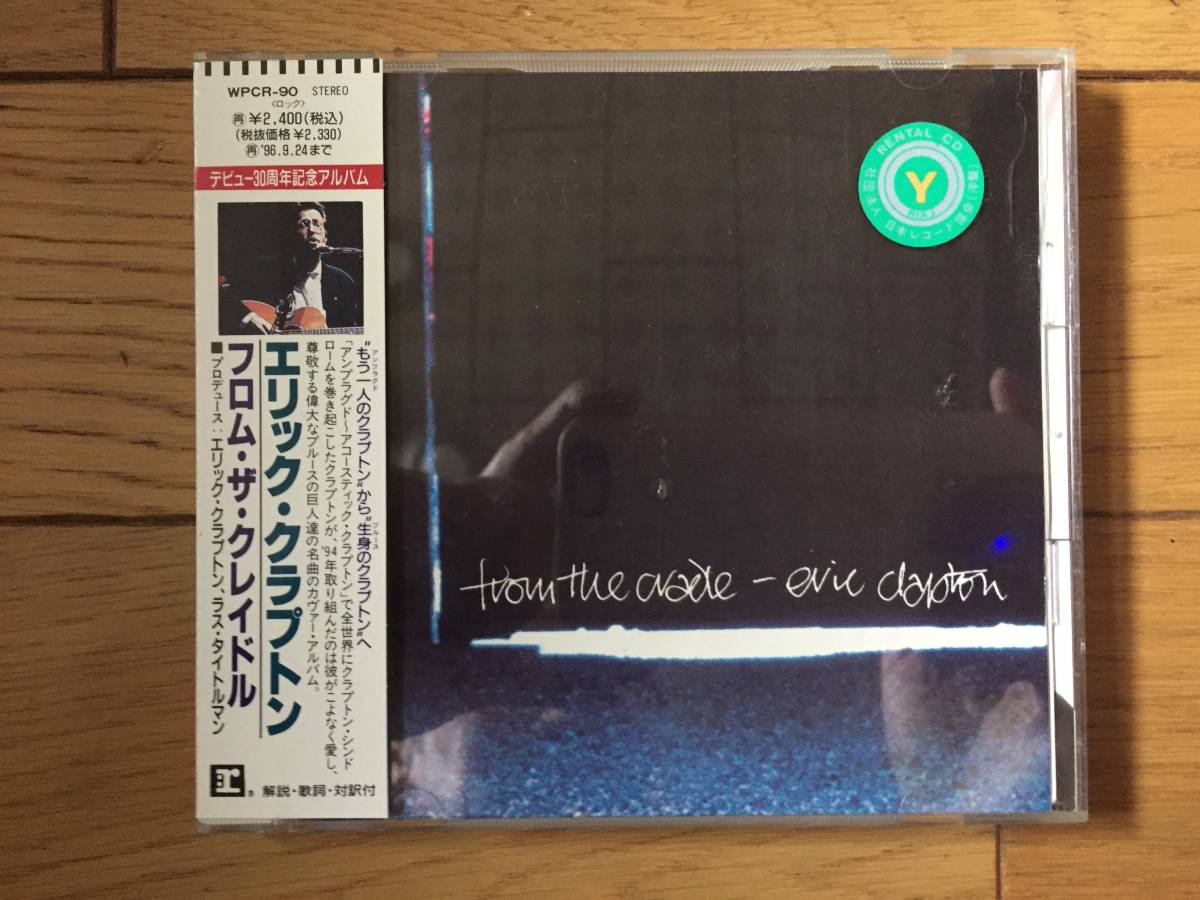 WPCR-90 STEREO
〈ロック〉
再 ¥2,400(税込)
(税抜価格¥2,330)
再 '96.9.24まで
デビュー30周年記念アルバム
アンプラグド
ブルース
"もう一人のクラプトン"から"生身のクラプトン"へ
「アンプラグド〜アコースティック・クラプトン」で全世界にクラプトン・シンド
ロームを巻き起こしたクラプトンが、'94年取り組んだのは彼がこよなく愛し、
尊敬する偉大なブルースの巨人達の名曲のカヴァー・アルバム。
エリック・クラプトン
フロム・ザ・クレイドル
■プロデュース:エリック・クラプトン、ラス・タイトルマン
r ®
解説・歌詞・対訳付
RENTAL CD
Y
RIAJ
社団法人 日本レコード協会
from the cradle - eric clapton